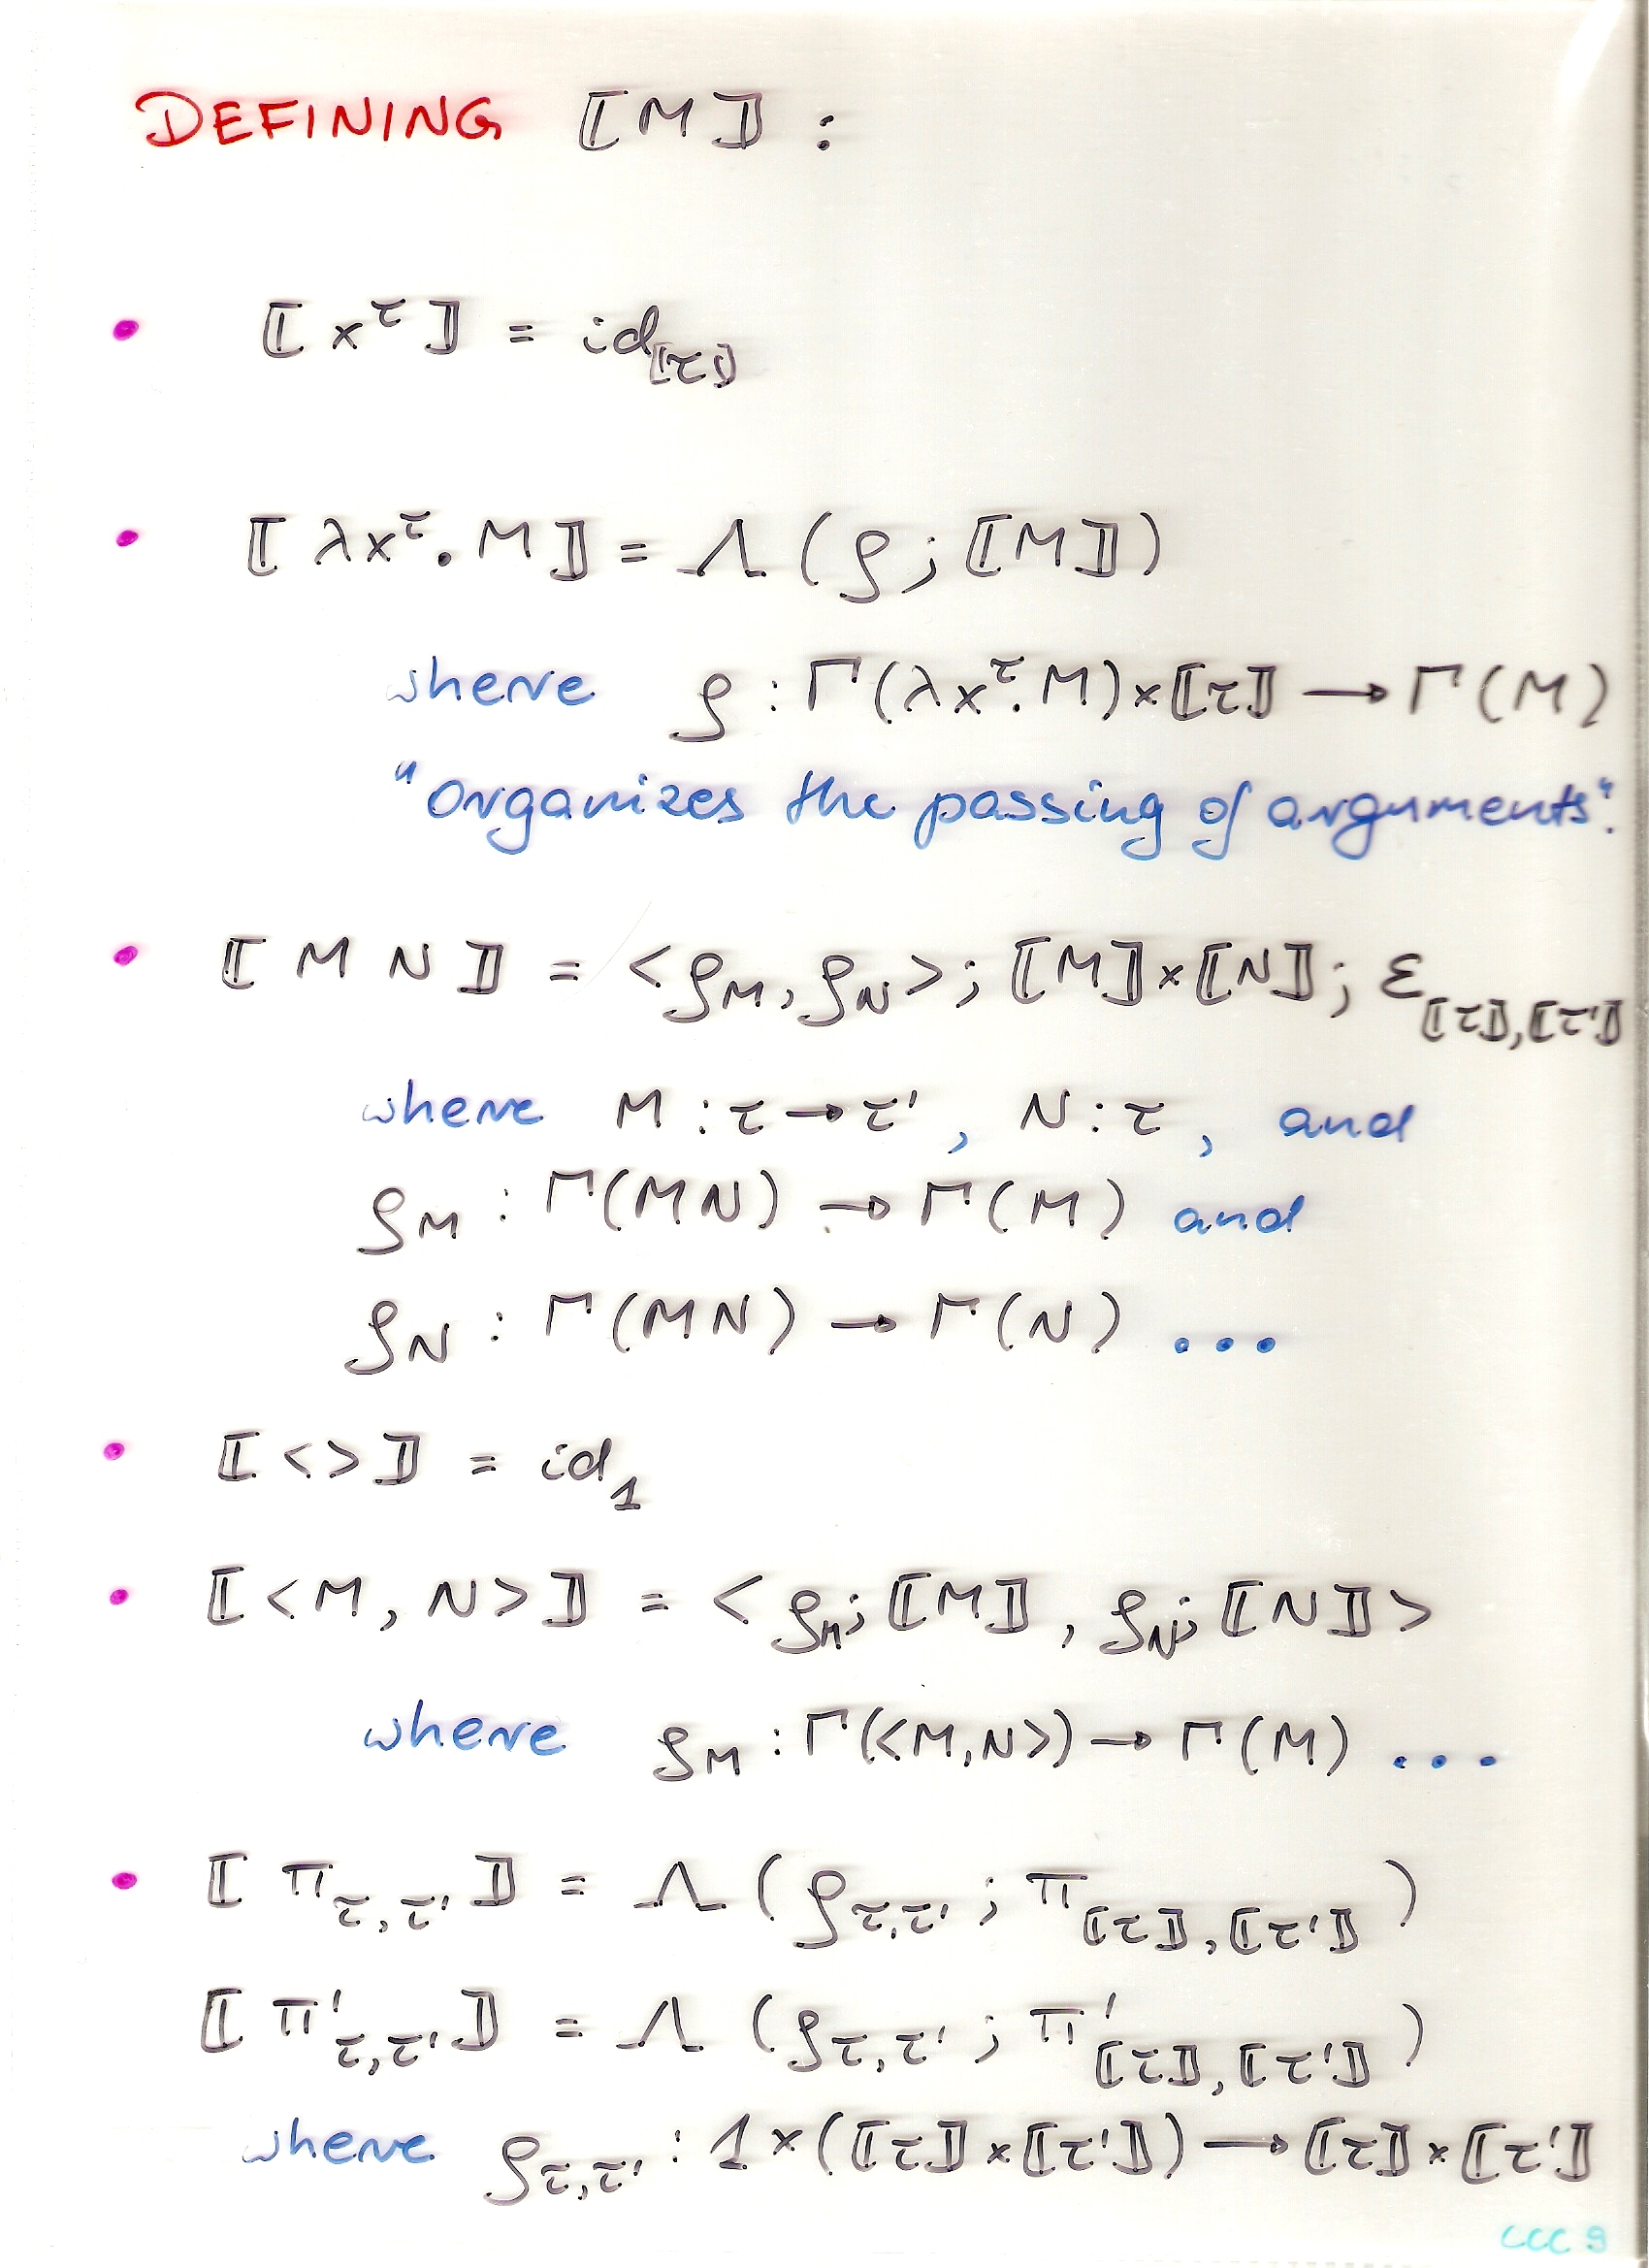 DEFINING ⟦M⟧ :
• ⟦x^τ⟧ = id_⟦τ⟧
• ⟦λx^τ.M⟧ = Λ(ρ;⟦M⟧)
where ρ : Γ(λx^τ.M)×⟦τ⟧ → Γ(M)
"organizes the passing of arguments".
• ⟦M N⟧ = <ρ_M, ρ_N>; ⟦M⟧×⟦N⟧; ε_⟦τ⟧,⟦τ'⟧
where M : τ→τ', N : τ, and
ρ_M : Γ(MN) → Γ(M) and
ρ_N : Γ(MN) → Γ(N) ...
• ⟦<>⟧ = id_1
• ⟦<M, N>⟧ = <ρ_M;⟦M⟧, ρ_N;⟦N⟧>
where ρ_M : Γ(<M,N>) → Γ(M) ...
• ⟦π_τ,τ'⟧ = Λ(ρ_τ,τ' ; π_⟦τ⟧,⟦τ'⟧)
⟦π'_τ,τ'⟧ = Λ(ρ_τ,τ' ; π'_⟦τ⟧,⟦τ'⟧)
where ρ_τ,τ' : 1×(⟦τ⟧×⟦τ'⟧) → ⟦τ⟧×⟦τ'⟧
CCC 9